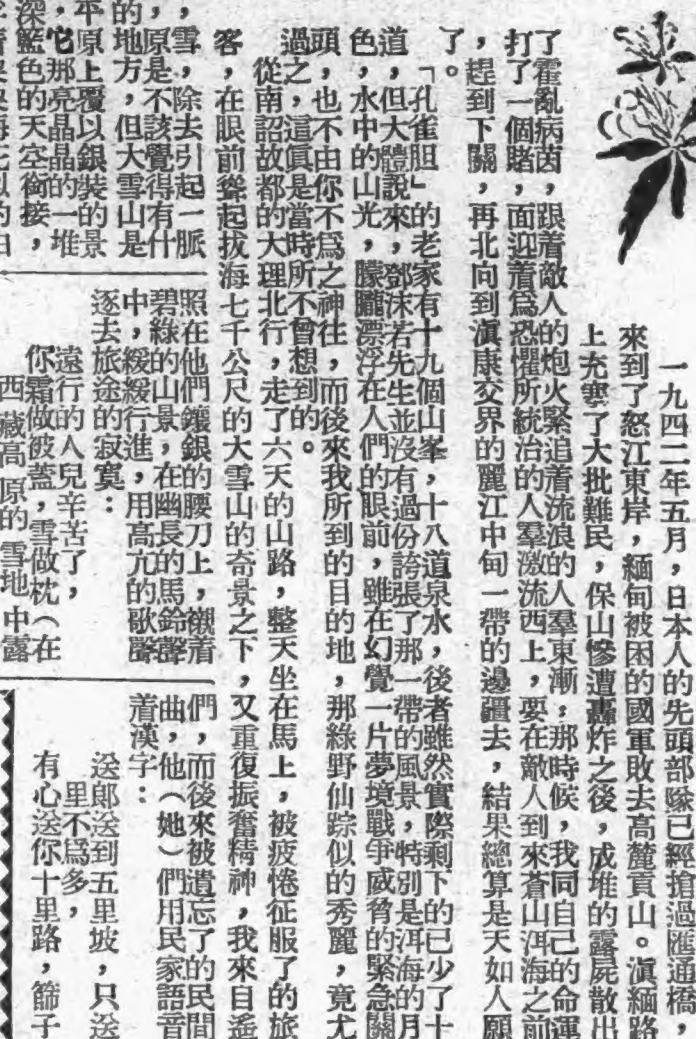 一九四二年五月，日本人的先頭部隊已經搶過匯通橋，
來到了怒江東岸，緬甸被困的國軍敗去高麓貢山。滇緬路
上充塞了大批難民，保山慘遭轟炸之後，成堆的露屍散出
了霍亂病茵，跟着敵人的炮火緊追着流浪的人羣東漸；那時候，我同自己的命運
打了一個賭，面迎着爲恐懼所統治的人羣激流西上，要在敵人到來蒼山洱海之前
，趕到下關，再北向到滇康交界的麗江中甸一帶的邊疆去，結果總算是天如人願
了。
「孔雀胆」的老家有十九個山峯，十八道泉水，後者雖然實際剩下的已少了十
道，但大體說來，鄧沫若先生並沒有過份誇張了那一帶的風景，特別是洱海的月
色，水中的山光，朦朧漂浮在人們的眼前，雖在幻覺一片夢境戰爭威脅的緊急關
頭，也不由你不爲之神往，而後來我所到的目的地，那綠野仙踪似的秀麗，竟尤
過之，這眞是當時所不曾想到的。
從南詔故都的大理北行，走了六天的山路，整天坐在馬上，被疲倦征服了的旅
客，在眼前聳起拔海七千公尺的大雪山的奇景之下，又重復振奮精神，我來自遙
雪，除去引起一脈
，原是不該覺得有什
的地方，但大雪山是
平原上覆以銀裝的景
，它那亮晶晶的一堆
深藍色的天空銜接，
照在他們鑲銀的腰刀上，襯着
碧綠的山景，在幽長的馬鈴聲
中，緩緩行進，用高亢的歌聲
逐去旅途的寂寞：
遠行的人兒辛苦了，
你霜做被蓋，雪做枕（在
西藏高原的雪地中露
們，而後來被遺忘了的民間
曲，他（她）們用民家語音
着漢字：
送郎送到五里坡，只送
里不爲多，
有心送你十里路，篩子